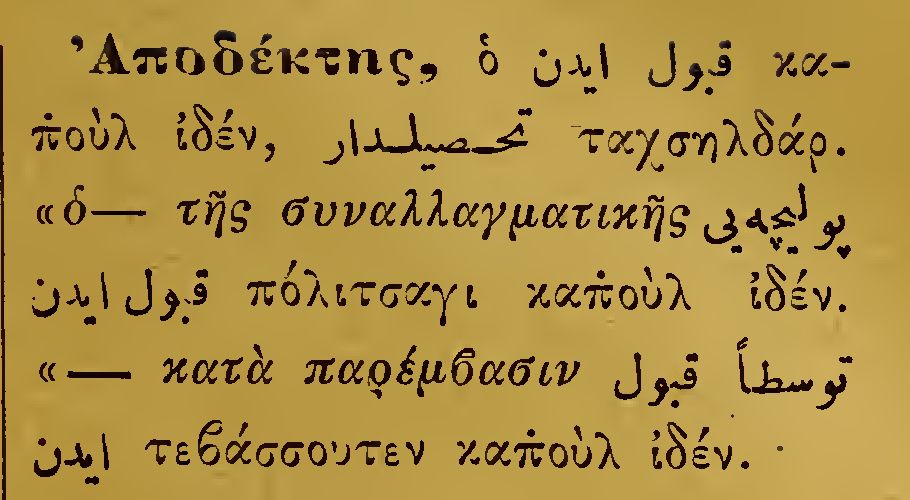 Ἀποδέκτης, ὁ قبول ايدن κα-
π̇οὺλ ἰδέν, تحصيلدار ταχσηλδάρ.
«ὁ— τῆς συναλλαγματικῆς پوليچه‌يى
قبول ايدن πόλιτσαγι καπ̇οὺλ ἰδέν.
«— κατὰ παρέμβασιν توسطاً قبول
ايدن τεβάσσουτεν καπ̇οὺλ ἰδέν.